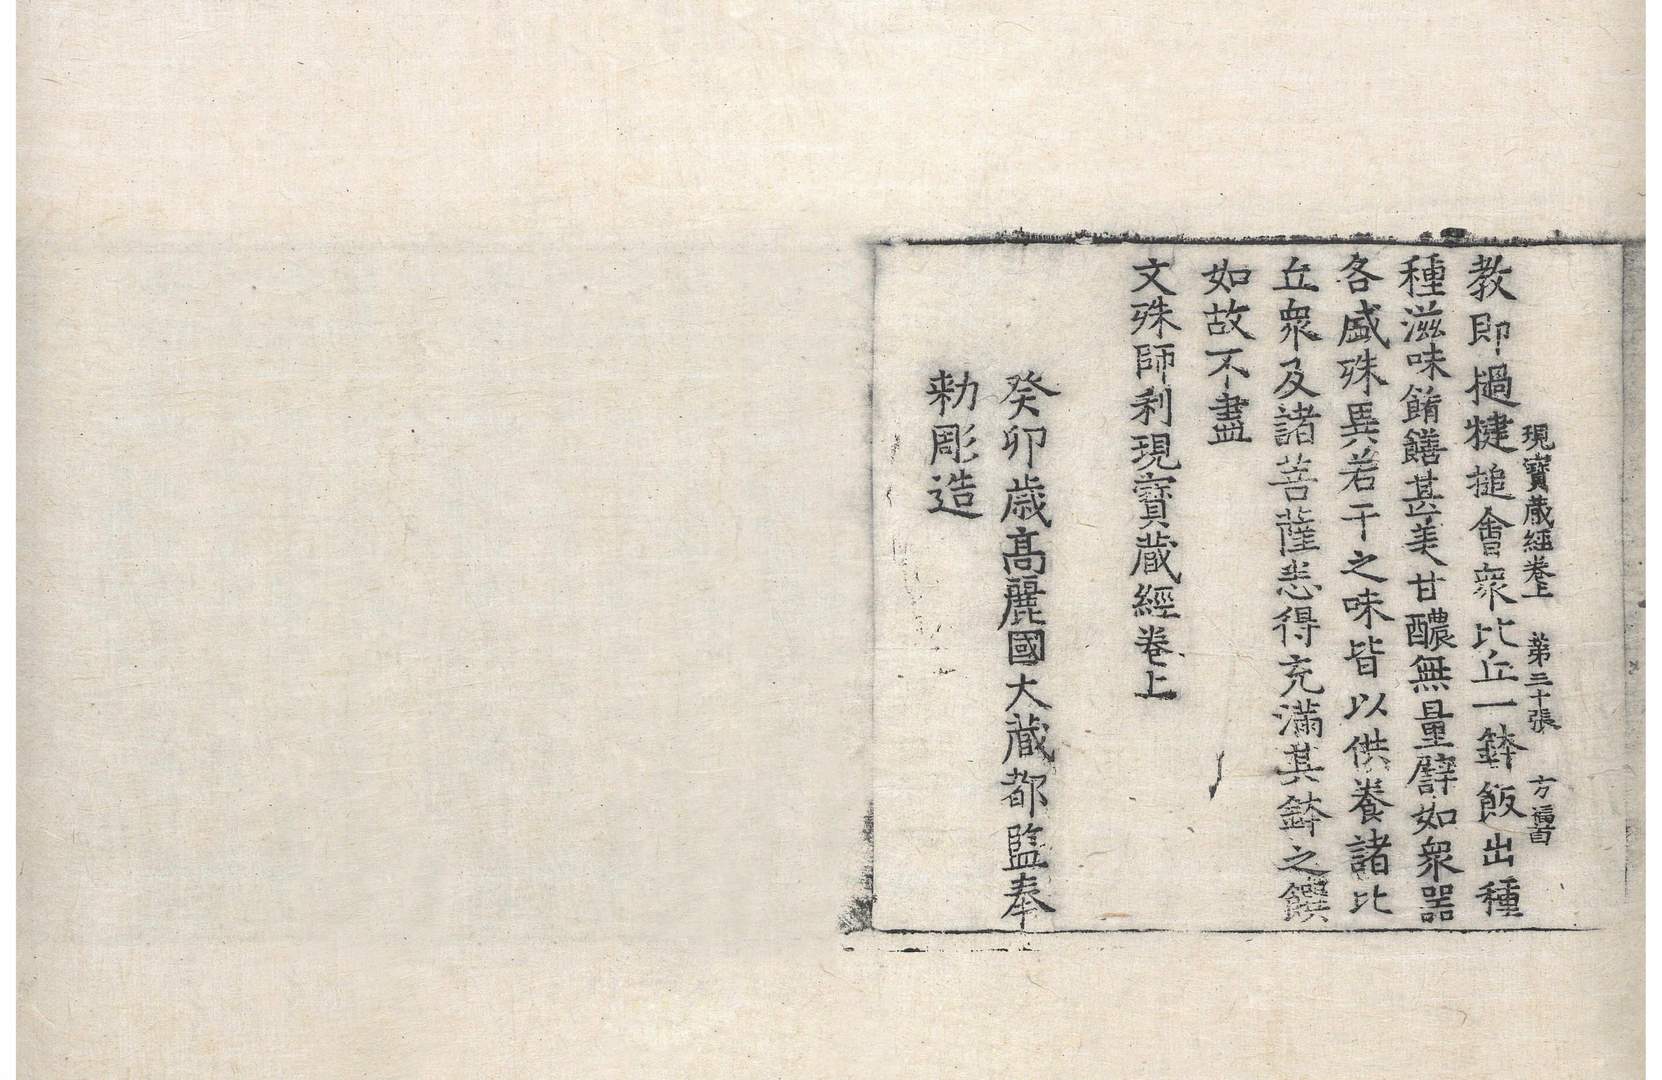 現寶蔵經卷上 第三十張 方
教即撾犍搥會衆比丘一鉢飯出種
種滋味餚饍甚美甘醲無量譬如衆器
各盛殊異若干之味皆以供養諸比
丘衆及諸菩薩悉得充滿其鉢之饌
如故不盡
文殊師利現寶蔵經卷上
癸卯歳高麗國大蔵都監奉
勑彫造